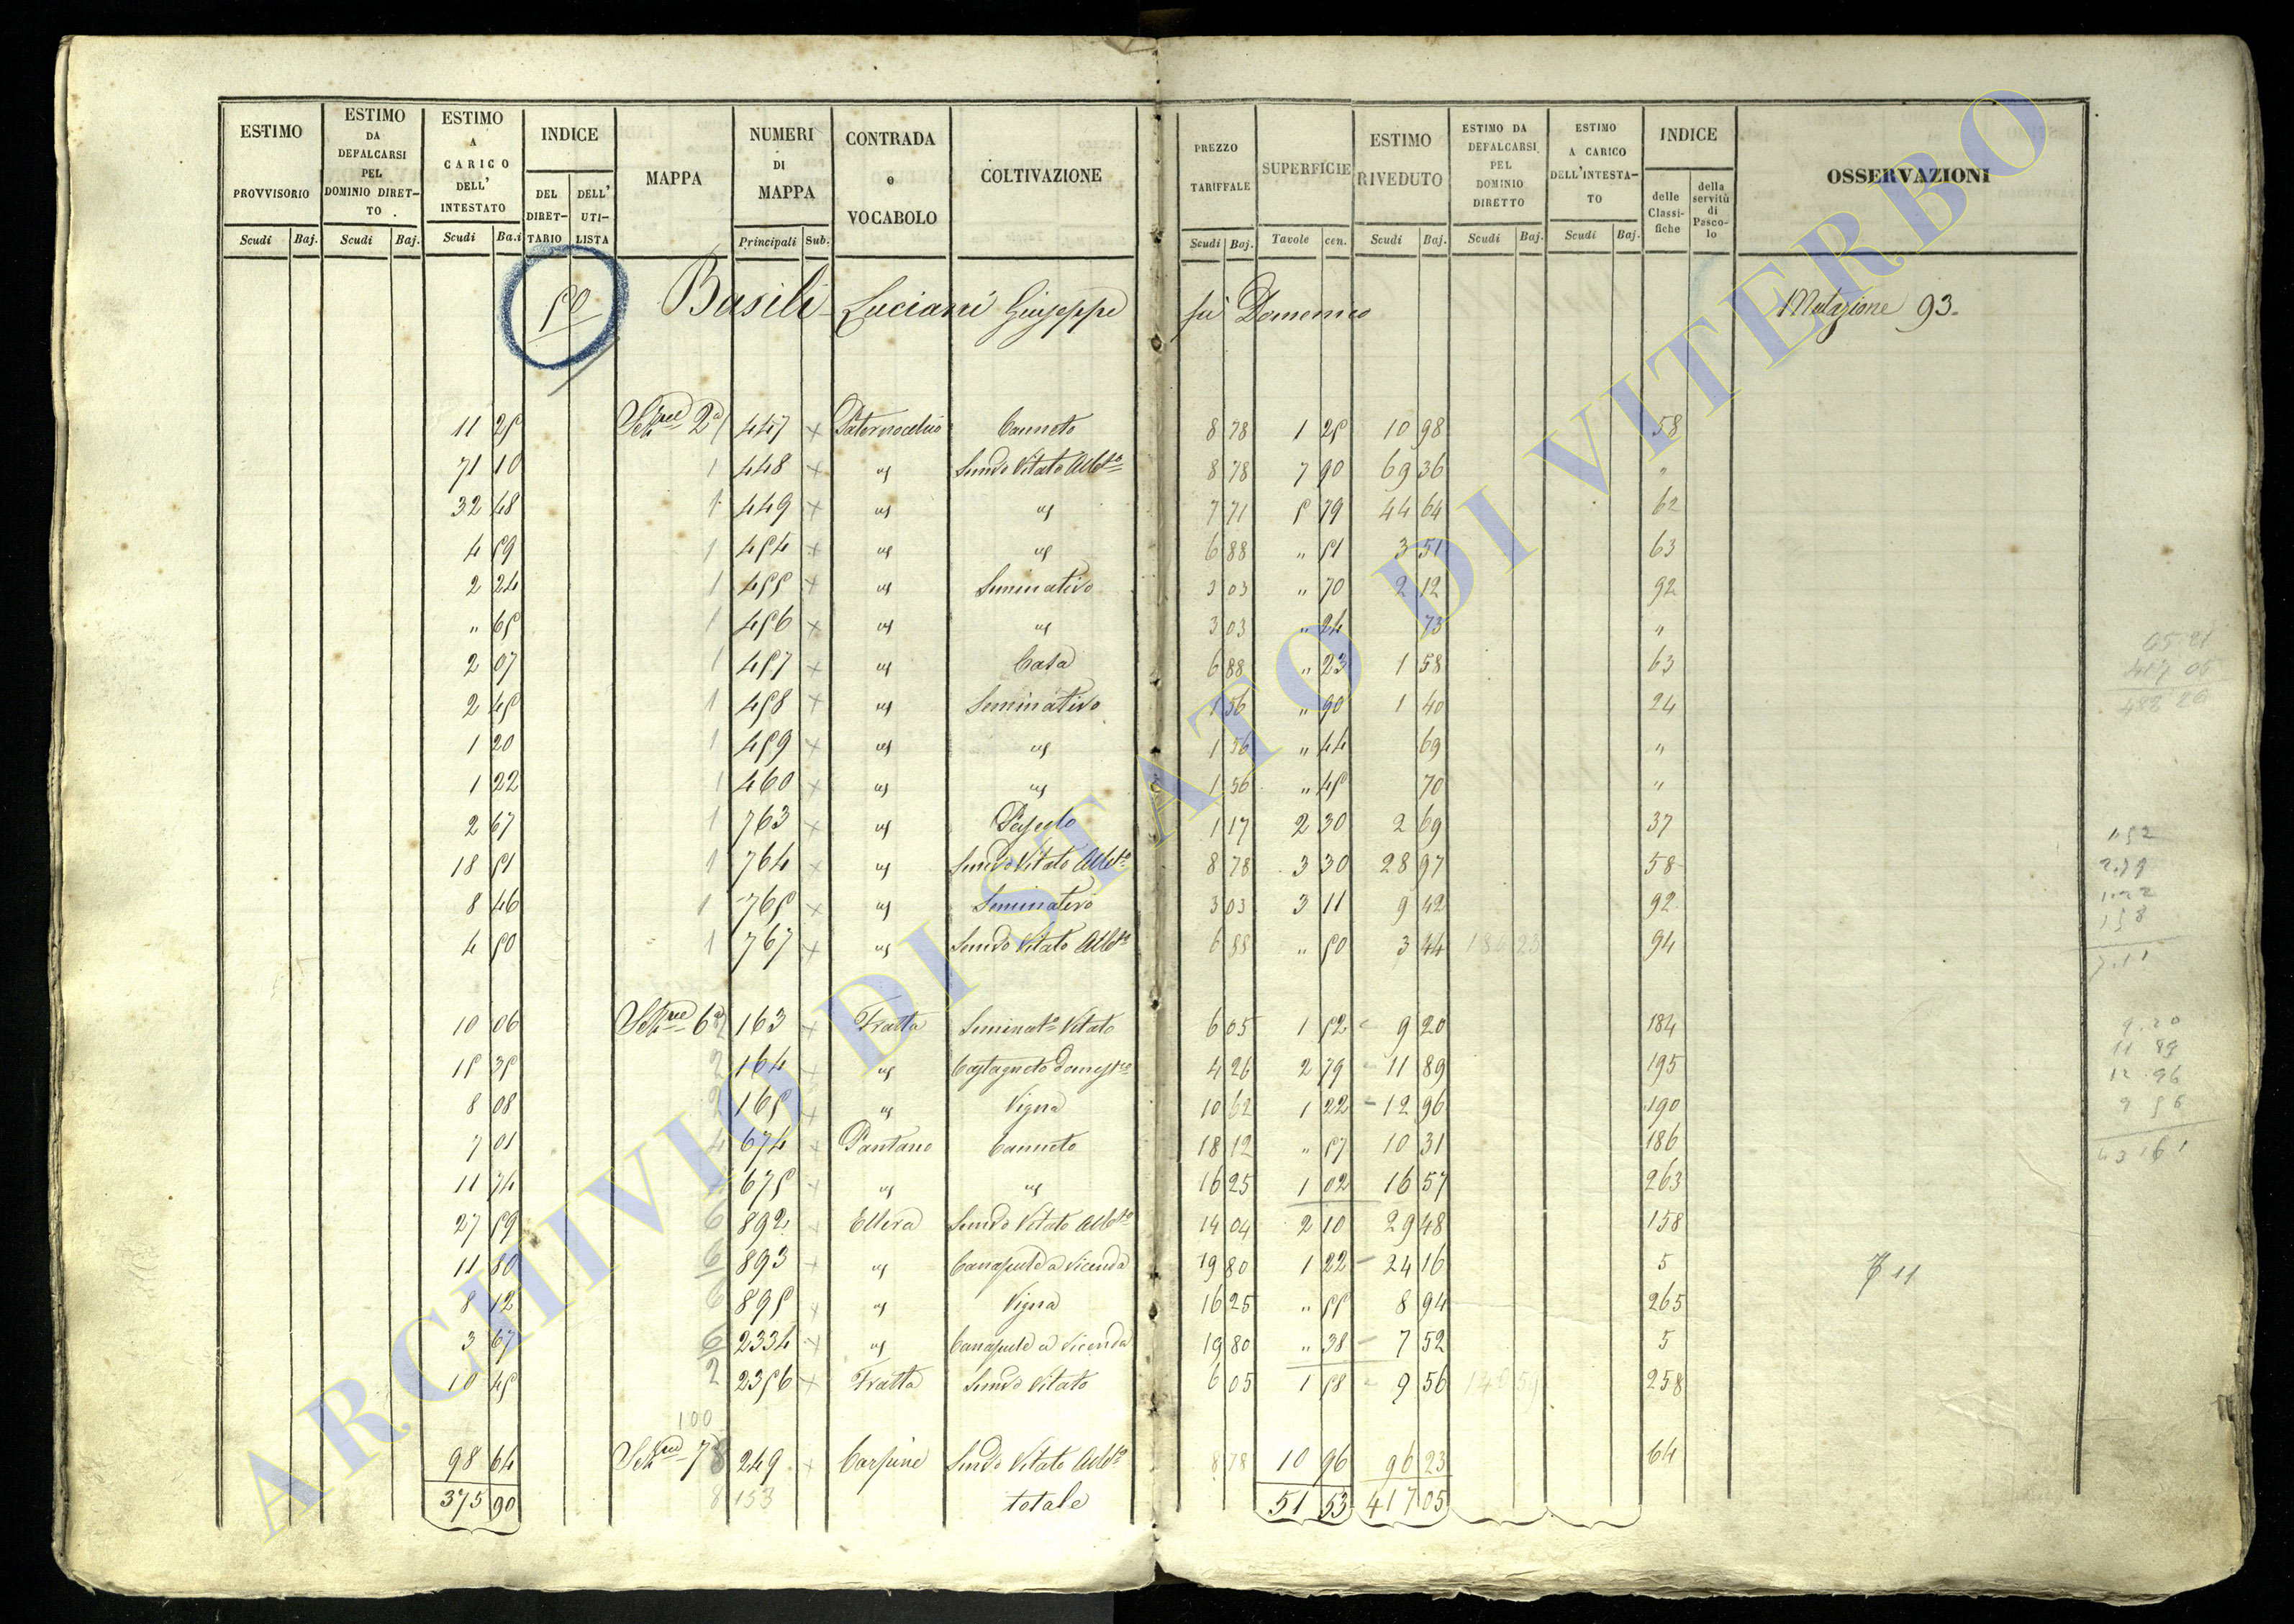 ESTIMO PROVVISORIO Scudi Baj.
ESTIMO DA DEFALCARSI PEL DOMINIO DIRET-TO Scudi Baj.
ESTIMO A CARICO DELL' INTESTATO Scudi Ba.i
INDICE DEL DIRET-TARIO DELL' UTI-LISTA
MAPPA
NUMERI DI MAPPA Principali Sub.
CONTRADA o VOCABOLO
COLTIVAZIONE
PREZZO TARIFFALE Scudi Baj.
SUPERFICIE Tavole cen.
ESTIMO RIVEDUTO Scudi Baj.
ESTIMO DA DEFALCARSI PEL DOMINIO DIRETTO Scudi Baj.
ESTIMO A CARICO DELL'INTESTA-TO Scudi Baj.
INDICE delle Classi-fiche della servitù di Pasco-lo
OSSERVAZIONI
50 Basili Luciani Giuseppe fù Domenico Mutazione 93.
11 25 Sez.ne 2a 1 447 x Canneto 8 78 1 25 10 98 58
71 10 1 448 x " Semvo Vitato Albto 8 78 7 90 69 36 "
32 48 1 449 x " " 7 71 5 79 44 64 62
4 59 1 454 x " " 6 88 " 51 3 51 63
2 24 1 455 x " Seminativo 3 03 " 70 2 12 92
" 65 1 456 x " " 3 03 " 24 73 "
2 07 1 457 x " Casa 6 88 " 23 1 58 63
2 45 1 458 x " Seminativo 1 56 " 90 1 40 24
1 20 1 459 x " " 1 56 " 44 69 "
1 22 1 460 x " " 1 56 " 45 70 "
2 67 1 763 x " Pascolo 1 17 2 30 2 69 37
18 51 1 764 x " Semvo Vitato Albto 8 78 3 30 28 97 58
8 46 1 765 x " Seminativo 3 03 3 11 9 42 92
4 50 1 767 x " Semvo Vitato Albto 6 88 " 50 3 44 94
10 06 Sez.ne 6a 2 163 x Fratta Seminato Vitato 6 05 1 52 9 20 184
15 35 2 164 x " Castagneto domestco 4 26 2 79 11 89 195
8 08 2 165 x " Vigna 10 62 1 22 12 96 190
7 01 4 674 x Pantano Canneto 18 12 " 57 10 31 186
11 74 675 x " " 16 25 1 02 16 57 263
27 59 6 892 x Ellera Semvo Vitato Albto 14 04 2 10 29 48 158
11 80 6 893 x " Canapule a Vicenda 19 80 1 22 24 16 5
8 12 6 895 x " Vigna 16 25 " 55 8 94 265
3 67 6 2334 x " Canapule a Vicenda 19 80 " 38 7 52 5
10 45 2 2356 x Fratta Semvo Vitato 6 05 1 58 9 56 258
100
98 64 Sez.ne 7a 8 249 x Carpine Semvo Vitato Albto 8 78 10 96 96 23 64
375 90 8 153 totale 51 53 417 05
65 21
417 05
482 26
1.52
2.79
1.22
1 58
7.11
9.20
11 89
12.96
9 56
43 61
7 11
ARCHIVIO DI STATO DI VITERBO